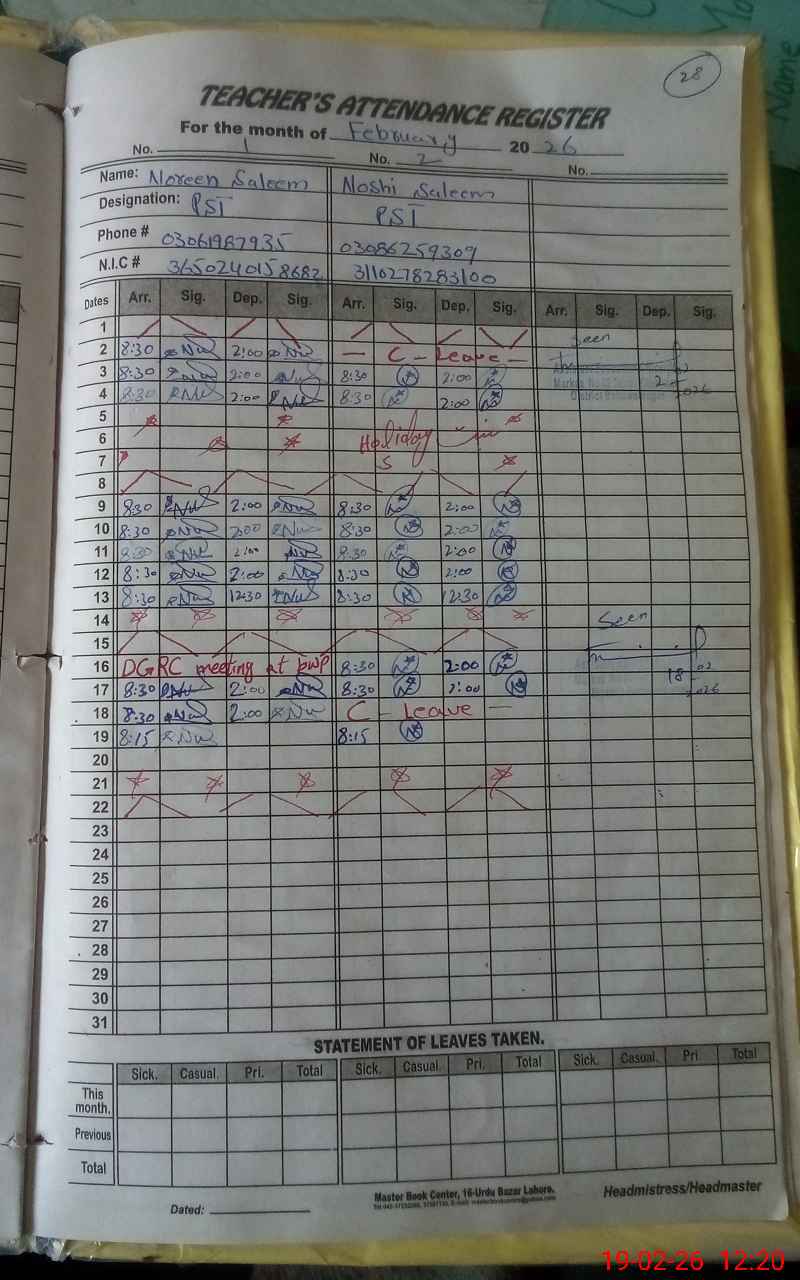 28
TEACHER'S ATTENDANCE REGISTER
For the month of February 20 26
No. 1 No. 2 No.
Name: Noreen Saleem Noshi Saleem
Designation: PST PST
Phone # 03061987935 03086259309
N.I.C # 3650240158682 3110278283100
Dates Arr. Sig. Dep. Sig. Arr. Sig. Dep. Sig. Arr. Sig. Dep. Sig.
1 Seen
2 8:30 2:00 — C - Leave -
3 8:30 2:00 8:30 2:00
4 8:30 2:00 8:30 2:00
5
6 Holiday
7 S
8
9 8:30 2:00 8:30 2:00
10 8:30 2:00 8:30 2:00
11 8:30 2:00 8:30 2:00
12 8:30 2:00 8:30 2:00
13 8:30 12:30 8:30 12:30
14 Seen
15
16 DGRC meeting at bwp 8:30 2:00
17 8:30 2:00 8:30 2:00 18-02-2026
18 8:30 2:00 C - Leave —
19 8:15 8:15
20
21
22
23
24
25
26
27
28
29
30
31
STATEMENT OF LEAVES TAKEN.
Sick. Casual. Pri. Total Sick. Casual. Pri. Total Sick. Casual. Pri Total
This month.
Previous
Total
Dated:
Master Book Center, 16-Urdu Bazar Lahore.
Headmistress/Headmaster
19-02-26 12:20